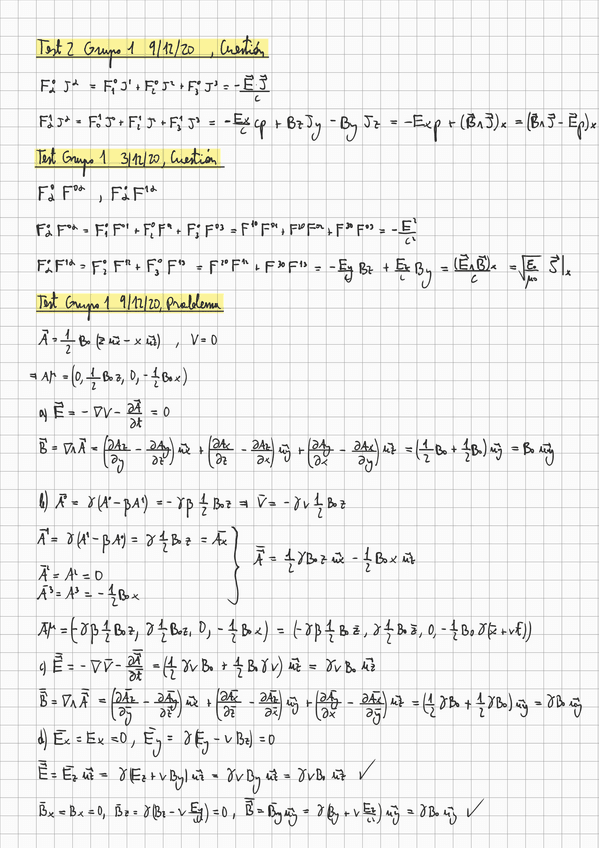 Test 2 Grupo 1 9/12/20, Cuestión
F_α^0 J^α = F_1^0 J^1 + F_2^0 J^2 + F_3^0 J^3 = -\frac{\vec{E} · \vec{J}}{c}
F_α^1 J^α = F_0^1 J^0 + F_2^1 J^2 + F_3^1 J^3 = -\frac{E_x}{c} cρ + B_z J_y - B_y J_z = -E_x ρ + (\vec{B}∧\vec{J})_x = (\vec{B}∧\vec{J} - \vec{E}ρ)_x
Test Grupo 1 3/12/20, Cuestión
F_α^0 F^{0α} , F_α^0 F^{1α}
F_α^0 F^{0α} = F_1^0 F^{01} + F_2^0 F^{02} + F_3^0 F^{03} = F^{10} F^{01} + F^{20} F^{02} + F^{30} F^{03} = -\frac{E^2}{c^2}
F_α^0 F^{1α} = F_2^0 F^{12} + F_3^0 F^{13} = F^{20} F^{12} + F^{30} F^{13} = -\frac{E_y}{c} B_z + \frac{E_z}{c} B_y = \frac{(\vec{E}∧\vec{B})_x}{c} = \sqrt{\frac{ε_0}{μ_0}} \vec{S}|_x
Test Grupo 1 9/12/20, Problema
\vec{A} = \frac{1}{2} B_0 (z \vec{u_x} - x \vec{u_z}) , V = 0
⇒ A^μ = (0, \frac{1}{2} B_0 z, 0, -\frac{1}{2} B_0 x)
a) \vec{E} = -∇V - \frac{∂\vec{A}}{∂t} = 0
\vec{B} = ∇∧\vec{A} = (\frac{∂A_z}{∂y} - \frac{∂A_y}{∂z}) \vec{u_x} + (\frac{∂A_x}{∂z} - \frac{∂A_z}{∂x}) \vec{u_y} + (\frac{∂A_y}{∂x} - \frac{∂A_x}{∂y}) \vec{u_z} = (\frac{1}{2} B_0 + \frac{1}{2} B_0) \vec{u_y} = B_0 \vec{u_y}
b) \bar{A}^0 = γ(A^0 - βA^1) = -γβ \frac{1}{2} B_0 z ⇒ \bar{V} = -γv \frac{1}{2} B_0 z
\bar{A}^1 = γ(A^1 - βA^0) = γ \frac{1}{2} B_0 z = \bar{A_x}
\bar{A}^2 = A^2 = 0
\bar{A}^3 = A^3 = -\frac{1}{2} B_0 x
} \bar{\vec{A}} = \frac{1}{2} γ B_0 z \vec{u_x} - \frac{1}{2} B_0 x \vec{u_z}
\bar{A}^μ = (-γβ \frac{1}{2} B_0 z, γ \frac{1}{2} B_0 z, 0, -\frac{1}{2} B_0 x) = (-γβ \frac{1}{2} B_0 \bar{z}, γ \frac{1}{2} B_0 \bar{z}, 0, -\frac{1}{2} B_0 γ(\bar{x} + v\bar{t}))
c) \bar{\vec{E}} = -∇\bar{V} - \frac{∂\bar{\vec{A}}}{∂\bar{t}} = (\frac{1}{2} γv B_0 + \frac{1}{2} B_0 γv) \vec{u_z} = γv B_0 \vec{u_z}
\bar{\vec{B}} = ∇∧\bar{\vec{A}} = (\frac{∂\bar{A_z}}{∂\bar{y}} - \frac{∂\bar{A_y}}{∂\bar{z}}) \vec{u_x} + (\frac{∂\bar{A_x}}{∂\bar{z}} - \frac{∂\bar{A_z}}{∂\bar{x}}) \vec{u_y} + (\frac{∂\bar{A_y}}{∂\bar{x}} - \frac{∂\bar{A_x}}{∂\bar{y}}) \vec{u_z} = (\frac{1}{2} γB_0 + \frac{1}{2} γB_0) \vec{u_y} = γB_0 \vec{u_y}
d) \bar{E_x} = E_x = 0, \bar{E_y} = γ(E_y - v B_z) = 0
\bar{\vec{E}} = \bar{E_z} \vec{u_z} = γ(E_z + v B_y) \vec{u_z} = γv B_y \vec{u_z} = γv B_0 \vec{u_z} ✓
\bar{B}_x = B_x = 0, \bar{B}_z = γ(B_z - v \frac{E_y}{c^2}) = 0, \bar{\vec{B}} = \bar{B_y} \vec{u_y} = γ(B_y + v \frac{E_z}{c^2}) \vec{u_y} = γB_0 \vec{u_y} ✓